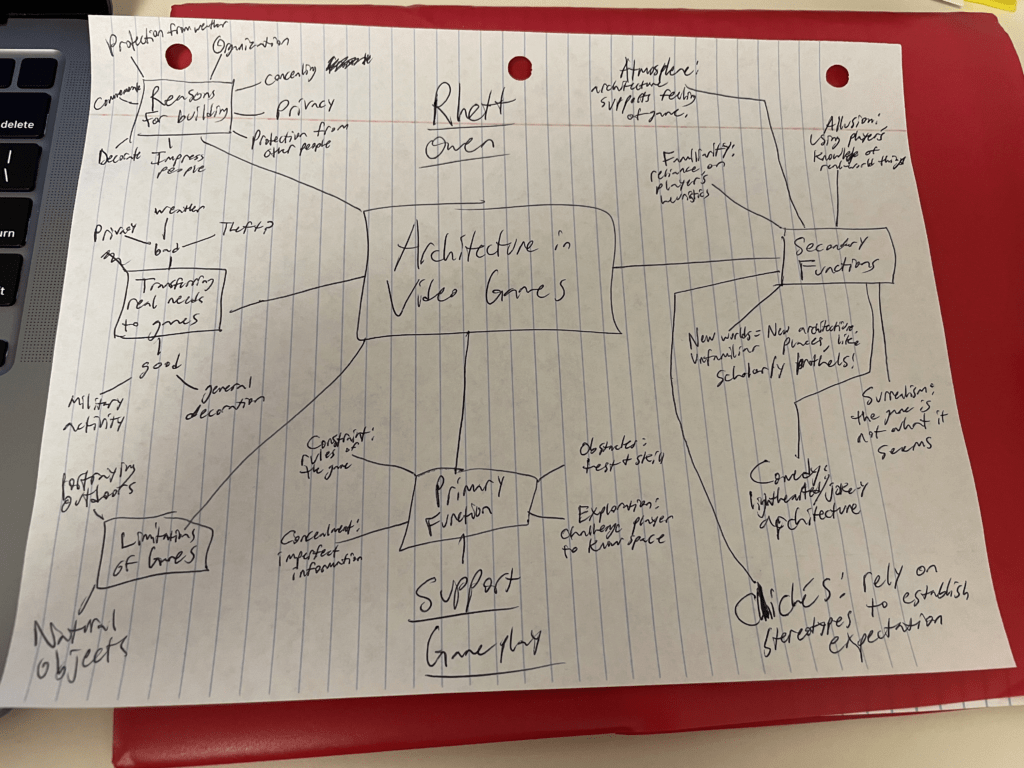 Protection from weather
Organization
Concealing
Privacy
Protection from
other people
Impress
people
Decorate
Reasons
for building
Rhett
Owen
Atmosphere:
architecture
supports feeling
of game.
Allusion:
Using players'
knowledge of
real-world things
Familiarity:
reliance on
player's
heuristics
Secondary
Functions
Architecture in
Video Games
weather
Privacy
Theft?
bad
Transferring
real needs
to games
good
Military
activity
general
decoration
New worlds = New architecture.
Unfamiliar places, like
Scholarly brothels!
Surrealism:
the game is
not what it
seems
Comedy:
lighthearted/jokey
architecture
Clichés: rely on
stereotypes to establish
expectation
Constraint:
rules of
the game
Obstacles:
test skill
Primary
Function
Concealment:
imperfect
information
Exploration:
challenge player
to know space
Support
Gameplay
Portraying
outdoors
Limitations
of Games
Natural
Objects
delete
\
urn